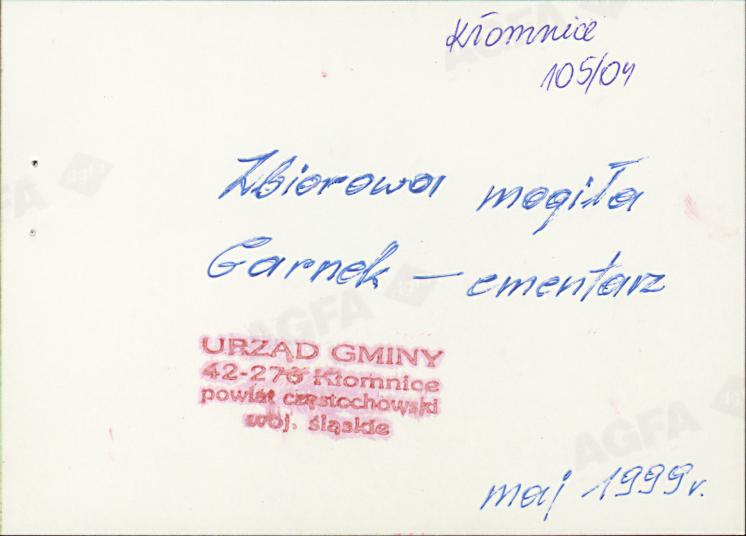 Kłomnice
105/04
Zbiorowa mogiła
Garnek - cmentarz
URZĄD GMINY
42-270 Kłomnice
powiat częstochowski
woj. śląskie
maj 1999 r.
AGFA
AGFA
AGFA
AGFA